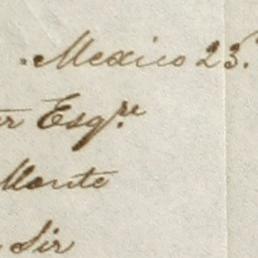 Mexico 23.
Esqre
Monte
Sir